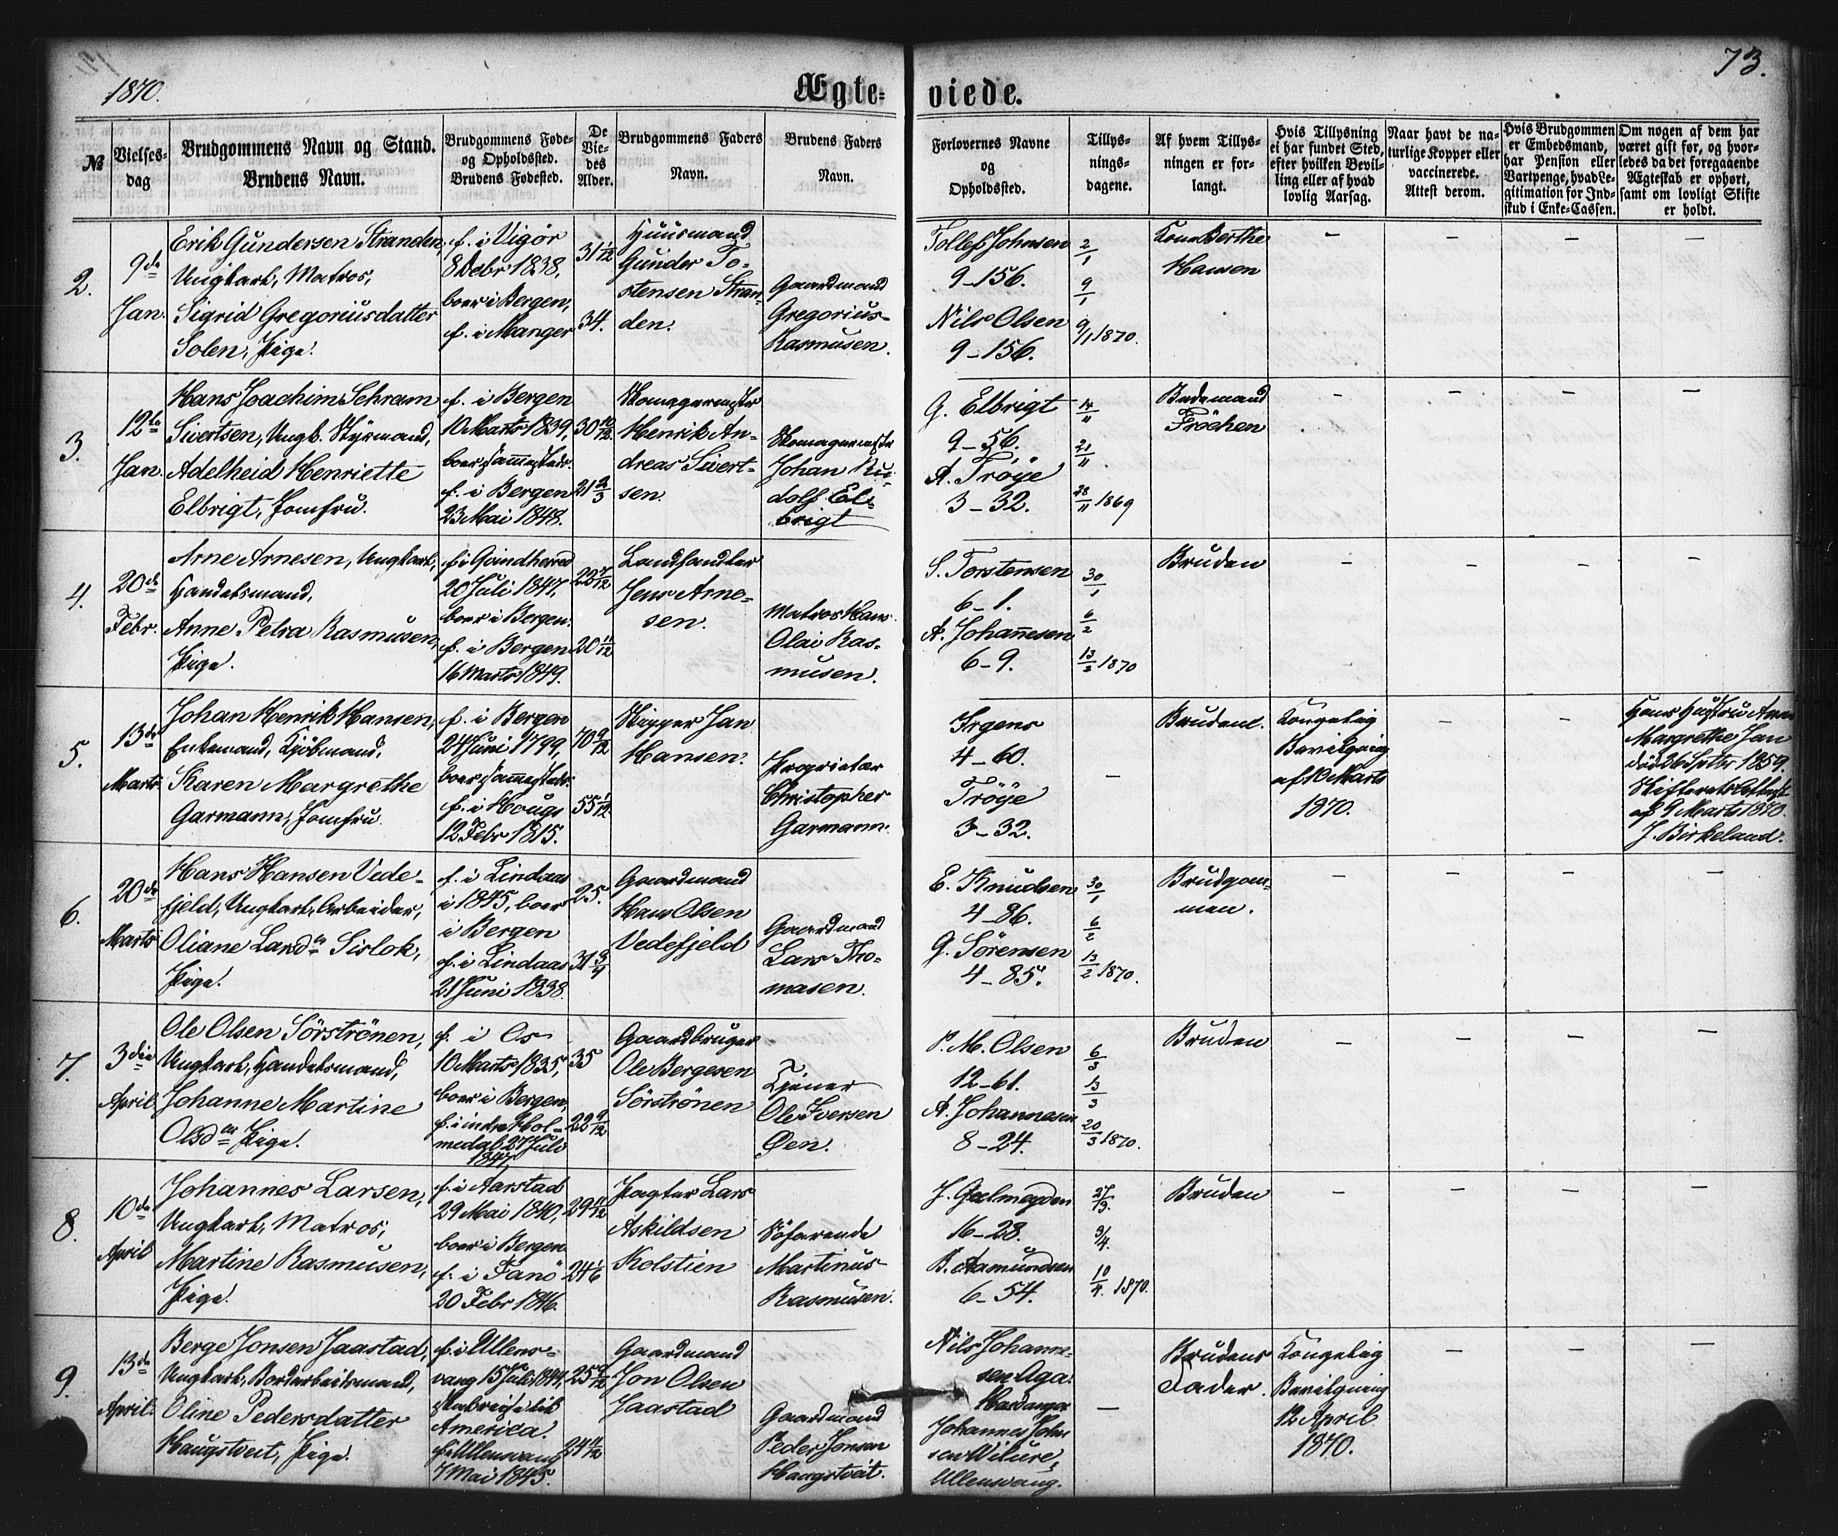 1870.
Ægte-
viede.
73.
№
Vielses-
dag
Brudgommens Navn og Stand.
Brudens Navn.
Brudgommens Føde-
og Opholdssted.
Brudens Fødested.
De
Vie-
des
Alder.
Brudgommens Faders
Navn.
Brudens Faders
Navn.
Forlovernes Navne
og
Opholdssted.
Tillys-
nings-
dagene.
Af hvem Tillys-
ningen er for-
langt.
Hvis Tillysning
ei har fundet Sted,
efter hvilken Bevil-
ling eller af hvad
lovlig Aarsag.
Naar havt de na-
turlige Kopper eller
vaccinerede.
Attest derom.
Hvis Brudgommen
er Embedsmand,
har Pension eller
Vartpenge, hvad Le-
gitimation for Ind-
skud i Enke-Cassen.
Om nogen af dem har
været gift før, og hvor-
ledes da det foregaaende
Ægteskab er ophørt,
samt om lovligt Skifte
er holdt.
2.
9de
Jan.
Erik Gundersen Stranden,
Ungkarl, Matros,
Sigrid Gregoriusdatter
Solen, Pige.
f. i Vigör
8 Debr 1838,
boer i Bergen,
f. i Manger
31 1/12
34.
Huusmand
Gunder To-
stensen Stran-
den.
Gaardmand
Gregorius
Rasmusen.
Tollef Johnsen
9-156.
Nils Olsen
9-156.
2/1
9/1
9/1 1870.
Kone Berthe
Hansen
3.
12te
Jan.
Hans Joachim Schram
Sivertsen, Ungk. Styrmand,
Adelheid Henriette
Elbrigt, Jomfru.
f. i Bergen
10 Marts 1839,
boer sammesteds.
f. i Bergen
23 Mai 1848.
30 10/12
21 2/3
Skomagermester
Henrik An-
dreas Sivert-
sen.
Skomagermester
Johan Ru-
dolf El-
brigt
G. Elbrigt
9-56.
A. Tröye
3-32.
14/11
21/11
28/11 1869
Bedemand
Fröchen
4.
20de
Febr.
Arne Arnesen, Ungkarl,
Handelsmand,
Anne Petra Rasmusen,
Pige.
f. i Qvindherred
20 Juli 1847,
boer i Bergen.
f. i Bergen
16 Marts 1849.
22 7/12
20 11/12
Landhandler
Jens Arne-
sen.
Matros Hans
Olai Ras-
musen.
S. Torstensen
6-1.
A. Johannesen
6-9.
30/1
6/2
13/2 1870
Bruden
5.
13de
Marts
Johan Henrik Hansen,
Enkemand, Kjöbmand,
Karen Margrethe
Garmann, Jomfru.
f. i Bergen
24 Juni 1799,
boer sammesteds.
f. i Hougs
12 Febr 1815.
70 9/12
55 1/12
Skipper Jan
Hansen.
Proprietær
Christopher
Garmann.
Irgens
4-60.
Tröye
3-32.
Bruden.
Kongelig
Bevilgning
af 10 Marts
1870.
Hans Hustru Anna
Margrethe Jan
död 26 Septbr 1859.
Skifterets Attest
af 9 Marts 1870.
J. Birkeland.
6.
20de
Marts
Hans Hansen Vede-
fjeld, Ungkarl, Arbeider,
Oliane Larsda Sislok,
Pige.
f. i Lindaas
i 1845, boer
i Bergen
f. i Lindaas
21 Juni 1838.
25.
31 3/4
Gaardmand
Hans Olsen
Vedefjeld
Gaardmand
Lars Tho-
masen.
E. Knudsen
4-86.
G. Sörensen
4-85.
30/1
6/2
13/2 1870.
Brudgom-
men.
7.
3die
April
Ole Olsen Sörströnen,
Ungkarl, Handelsmand,
Johanne Martine
Olsda Pige.
f. i Os
10 Marts 1835,
boer i Bergen,
f. i indre Hol-
medal 27 Juli
1847
35
22 9/12
Gaardbruger
Ole Bergesen
Sörströnen
Tjener
Ole Iversen
Öen.
P. M. Olsen
12-61.
A. Johannesen
8-24.
6/3
13/3
20/3 1870.
Bruden
8.
10de
April
Johannes Larsen,
Ungkarl, Matros,
Martine Rasmusen,
Pige.
f. i Aarstad
29 Mai 1840,
boer i Bergen
f. i Fanö
20 Febr 1846.
29 11/12
24 1/6
Pagter Lars
Askildsen
Kolstien
Söfarende
Martinus
Rasmusen.
J. Gjelmeyden
16-28.
B. Aamundsen
6-54.
27/3.
3/4.
10/4. 1870.
Bruden
9.
13de
April.
Berge Jonsen Jaastad,
Ungkarl, Bordarbeidsmand,
Oline Pedersdatter
Haugstveit, Pige.
f. i Ullens-
vang 15 Juli 1844,
paa reise til
America.
f. i Ullensvang
7 Mai 1845.
25 9/12
24 11/12
Gaardmand
Jon Olsen
Jaastad
Gaardmand
Peder Jonsen
Haugstveit.
Nils Johanne-
sen Aga.
Hardanger
Johannes John-
sen Vilure,
Ullensvang.
Brudens
Fader.
Kongelig
Bevilgning
12 April
1870.